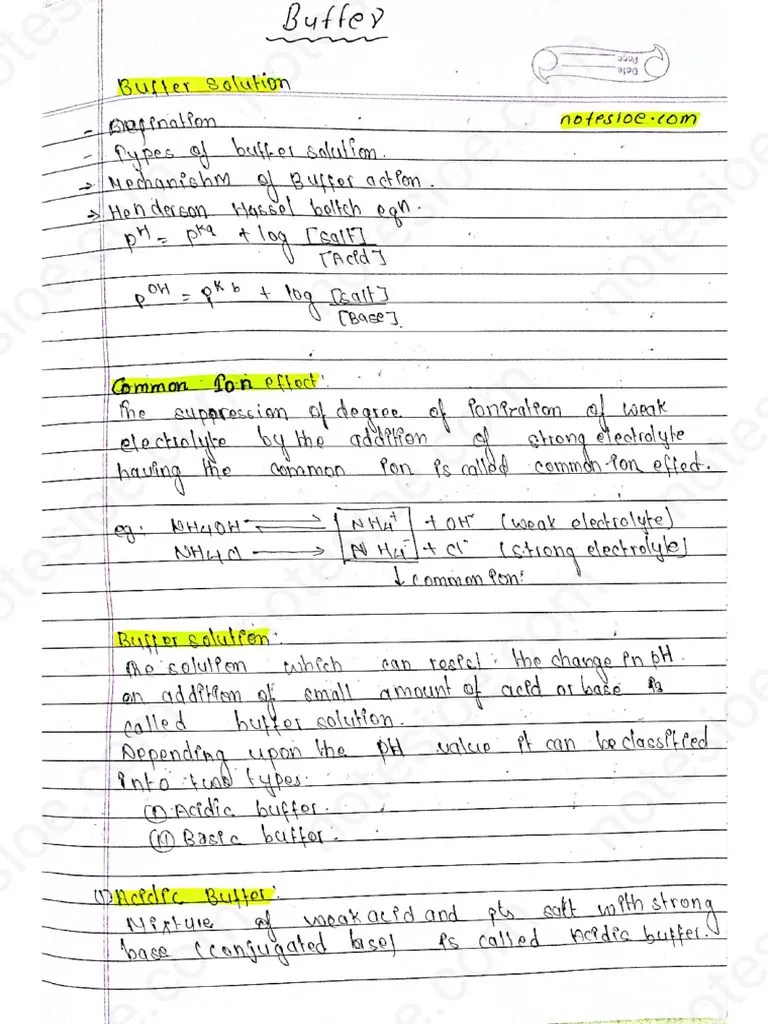 Buffer
Date
Page
Buffer solution
notesioe.com
- Defination
- Types of buffer solution.
→ Mechanishm of Buffer action.
→ Henderson Hassel beltch eqn.
pH = pKa + log [salt]
[Acid]
pOH = pKb + log [salt]
[Base].
Common Ion effect:
The suppression of degree of ionization of weak
electrolyte by the addition of strong electrolyte
having the common ion is called common-ion effect.
eg: NH4OH ⇌ NH4+ + OH- (weak electrolyte)
NH4Cl → NH4- + Cl- (strong electrolyte)
↓ common ion:
Buffer solution:
The solution which can resist the change in pH
on addition of small amount of acid or base is
called buffer solution.
Depending upon the pH value it can be classified
into two types:
(i) Acidic buffer.
(ii) Basic buffer.
(1) Acidic Buffer:
Mixture of weak acid and its salt with strong
base (conjugated base) is called Acidic buffer.